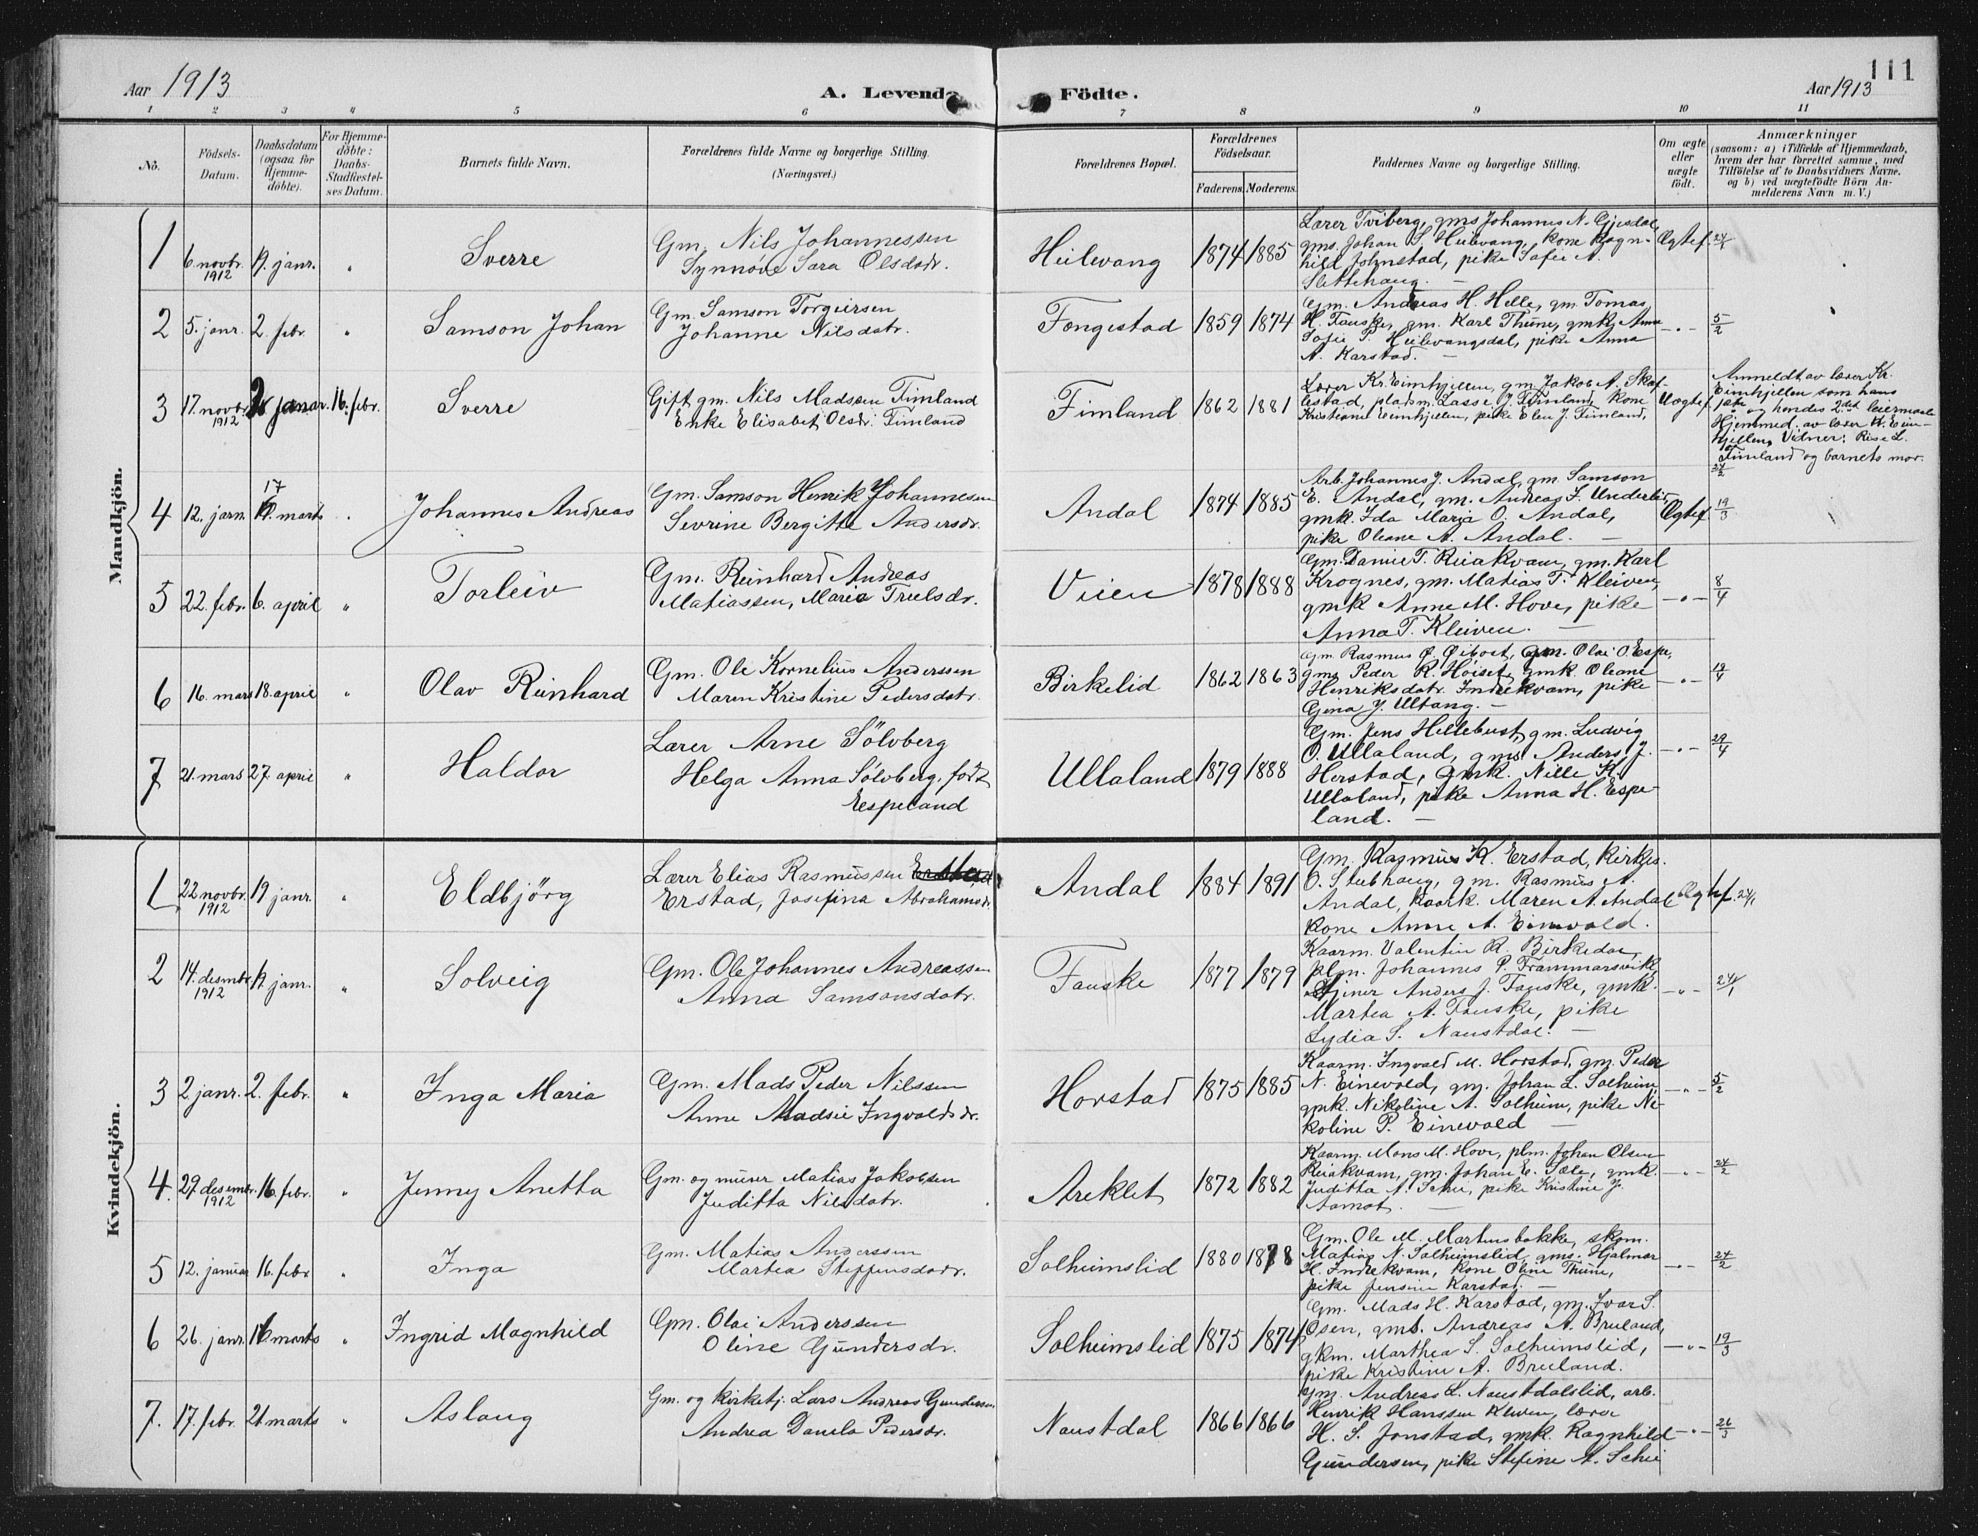 Aar 1913 A. Levende Födte. Aar 1913 111
1 2 3 4 5 6 7 8 9 10 11
No.
Födsels-Datum.
Daabsdatum (ogsaa for Hjemme-döbte).
For Hjemme-döbte: Daabs-Stadfæstel-ses Datum.
Barnets fulde Navn.
Forældrenes fulde Navne og borgerlige Stilling.
(Næringsvei.)
Forældrenes Bopæl.
Forældrenes Födselsaar.
Faderens. Moderens.
Faddernes Navne og borgerlige Stilling.
Om ægte eller uægte födt.
Anmærkninger
(saasom: a) i Tilfælde af Hjemmedaab,
hvem der har forrettet samme, med
Tilföielse af to Daabsvidners Navne,
og b) ved uægtefödte Börn An-
melderens Navn m. V.)
Mandkjön.
1 6. novbr. 1912 19. janr. " Sverre
Gm. Nils Johannessen
Synnøve Sara Olsdatr.
Heilevang 1874 1885
Lærer Tviberg, gms Johannes N. Gjesdal,
gms. Johan S. Heilevang, kone Ragn-
hild Johnstad, pike Sofie A.
Slettehaug. —
Ægtef. 24/1
2 5. janr. 2. febr. " Samson Johan
Gm. Samson Torgeirsen
Johanne Nilsdatr.
Fongestad 1859 1874
Gm. Andreas H. Helle, gm. Tomas
H. Fauske, gm. Karl Thune, gmk. Anne
Sofie P. Heilevangsdal, pike Anna
A. Karstad. —
— " — 5/2
3 17. novbr. 1912 janar. 16. febr. Sverre
Gift gm. Nils Madssen Timland
Enke Elisabet Olsdr. Timland
Fimland 1862 1881
Lærer Kr. Eimhjellen, gm. Jakob A. Skaf-
lestad, pladsm. Lasse J. Fimland, kone
Kristiane Eimhjellen, pike Elen J. Fimland.
Uægtef.
Anmeldt av lærer Kr.
Eimhjellen som hans
og hendes 2det leiermaal
Hjemmed. av lærer K. Eim-
hjellen, Vidner:
Fimland og barnets mor.
24/2
4 12. jarn. 17 marts " Johannes Andreas
Gm. Samson Henrik Johannesen
Sevrine Bergitte Andersdr.
Andal 1874 1885
Arb. Johannes J. Andal, gm. Samson
E. Andal, gm. Andreas S. Underlid,
gmk. Ida Maria O. Andal,
pike Oleane A. Andal. —
Ægtef. 19/3
5 22. febr. 6. april " Torleiv
Gm. Reinhard Andreas
Matiassen, Maria Trulsdr.
Vien 1878 1888
Gm. Daniel T. Reiakvam, gm. Karl
Krognes, gm. Matias T. Kleiven,
gmk Anne M. Hove, pike
Anna T. Kleiven. —
— " — 8/4
6 16. mars 18. april " Olav Reinhard
Gm. Ole Kornelius Anderssen
Maren Kristine Pedersdatr.
Birkelid 1862 1863
Gm. Rasmus Ø. Øibost, gm. Olai O. Espe,
gms Peder R. Høiset, gmk. Oleane
Henriksdatr. Indrekvam, pike
Gjena J. Ullang. —
— " —
7 21. mars 27. april " Haldor
Lærer Arne Sölvberg
Helga Anna Sölvberg, født
Espeland
Ullaland 1879 1888
Gm. Jens Hellebust, gm. Ludvig
O. Ullaland, gms Anders J.
Herstad, gmk. Nille K.
Ullaland, pike Anna H. Espe-
land. —
— " — 29/4
Kvindekjön.
1 22 novbr. 1912 19 janr. " Eldbjörg
Lærer Elias Rasmussen
Erstad, Josefina Abrahamsdr.
Andal 1884 1891
Gm. Rasmus K. Erstad, kirkes.
O. Stubhaug, gm. Rasmus A.
Andal, kaark. Maren A. Andal
kone Anne A. Einevold.
Ægtef. 24/1
2 14. desmbr 1912 19. janr. " Solveig
Gm. Ole Johannes Andreassen
Anna Samsonsdatr.
Fauske 1877 1879
Kaarm. Valentin R. Birkedal,
plm. Johannes P. Frammarsvik,
Tjener Anders J. Fauske, gmk.
Martea A. Fauske, pike
Lydia S. Naustdal. —
— " — 24/1
3 2 janr. 2. febr. " Inga Maria
Gm. Mads Peder Nilssen
Anne Madsie Ingvaldsdr.
Horstad 1875 1885
Kaarm. Ingvald M. Horstad, gm. Peder
N. Einevold, gm. Johan L. Solheim,
gmk. Nikoline A. Solheim, pike Ni-
koline P. Einevold —
— " — 5/2
4. 29. desembr. 1912 16. febr. " Jenny Anetta
Gm. og murer Matias Jakobsen
Juditta Nilsdatr.
Areklet 1872 1882
Kaarm. Mons M. Hove, plm. Johan Olsen
Reiakvam, gm. Johan E. Sæle, gmk.
Juditta A. Schei, pike Kristine J.
Aamot. —
— " — 24/2
5 12. januar 16. febr. " Inga
Gm. Matias Anderssen
Martea Steffensdatr.
Solheimslid 1880 1878
Gm. Ole M. Martinsbakke, skom.
Matias N. Solheimslid, gms. Hjalmar
H. Indrekvam, kone Oline Thune,
pike Jensine Karstad. —
— " — 24/2
6 26. janr. 16 marts " Ingrid Magnhild
Gm. Olai Anderssen
Oline Gundersdr.
Solheimslid 1875 1874
Gm. Mads H. Karstad, gm. Ivar S.
Osen, gmb. Andreas A. Bruland,
gkm. Marthea S. Solheimslid,
pike Kristine A. Bruland.
— " — 19/3
7. 17. febr. 21 marts " Aslaug
Gm. og kirketj. Lars Andreas Gundersen
Andrea Danila Pedersdr.
Naustdal 1866 1866
Gm. Andreas L. Naustdalslid, arb.
Henrik Hanssen Kleven, lærer
H. S. Jonstad, gmk. Ragnhild
Gundersen, pike Stefine A. Schei
— " — 26/3